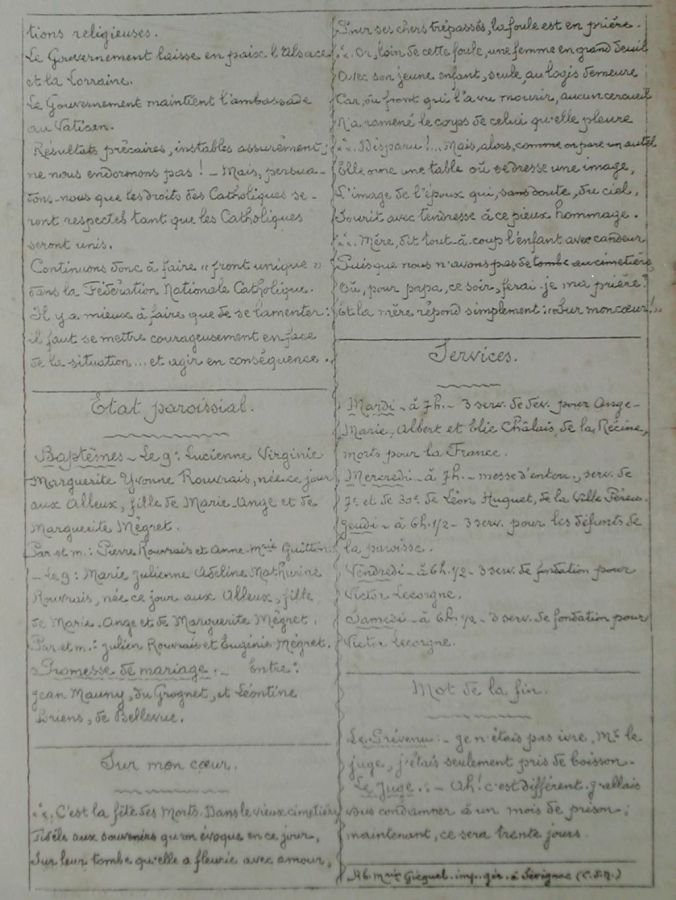 tions religieuses.
Le Gouvernement laisse en paix l'Alsace
et la Lorraine.
Le Gouvernement maintient l'ambassade
au Vatican.
Résultats précaires, instables assurément ;
ne nous endormons pas ! - Mais, persua-
dons-nous que les droits des Catholiques se-
ront respectés tant que les Catholiques
seront unis.
Continuons donc à faire "front unique"
dans la Fédération Nationale Catholique.
Il y a mieux à faire que de se lamenter :
il faut se mettre courageusement en face
de la situation... et agir en conséquence.
Etat paroissial.
Baptêmes - Le 9 : Lucienne Virginie
Marguerite Yvonne Rouvrais, née ce jour
aux Alleux, fille de Marie-Ange et de
Marguerite Mégret.
Par. et m. : Pierre Rouvrais et Anne-Mie Guitton
- Le 9 : Marie Julienne Adeline Mathurine
Rouvrais, née ce jour aux Alleux, fille
de Marie-Ange et de Marguerite Mégret.
Par. et m. : Julien Rouvrais et Eugénie Mégret.
Promesse de mariage. - Entre :
Jean Mauny, du Grognet, et Léontine
Briens, de Bellevue.
Sur mon cœur.
C'est la fête des Morts. Dans le vieux cimetière
Fidèle aux souvenirs qu'on évoque en ce jour,
Sur leur tombe qu'elle a fleurie avec amour,
Pour ses chers trépassés, la foule est en prière.
Or, loin de cette foule, une femme en grand deuil
Avec son jeune enfant, seule au logis demeure
Car, du front qui l'a vu mourir, aucun cercueil
N'a ramené le corps de celui qu'elle pleure
Disparu !... Mais, alors, comme on pare un autel
Elle orne une table où se dresse une image,
L'image de l'époux qui, sans doute, du ciel,
Sourit avec tendresse à ce pieux hommage.
Mère, dit tout-à-coup l'enfant avec candeur
Puisque nous n'avons pas de tombe au cimetière
Où, pour papa, ce soir, ferai-je ma prière ?
Et la mère répond simplement : "Sur mon cœur !"
Services.
Mardi - à 7h. - 3 serv. de dev. pour Ange-
Marie, Albert et Elie Châlais, de la
morts pour la France.
Mercredi - à 7h. - messe d'enterr., serv. de
7e et de 30e de Léon Huguet, de la Ville
Jeudi - à 6h.1/2 - 3 serv. pour les défunts de
la paroisse.
Vendredi - à 6h.1/2 - 3 serv. de fondation pour
Victor Lecorgne.
Samedi - à 6h.1/2 - 3 serv. de fondation pour
Victor Lecorgne.
Mot de la fin.
Le Prévenu : - Je n'étais pas ivre, Mr le
juge, j'étais seulement pris de boisson.
Le Juge. : - Ah ! c'est différent. J'allais
vous condamner à un mois de prison ;
maintenant, ce sera trente jours.
Ab. Mie Gicquel. imp. gér. à Sévignac (C.d.N.)